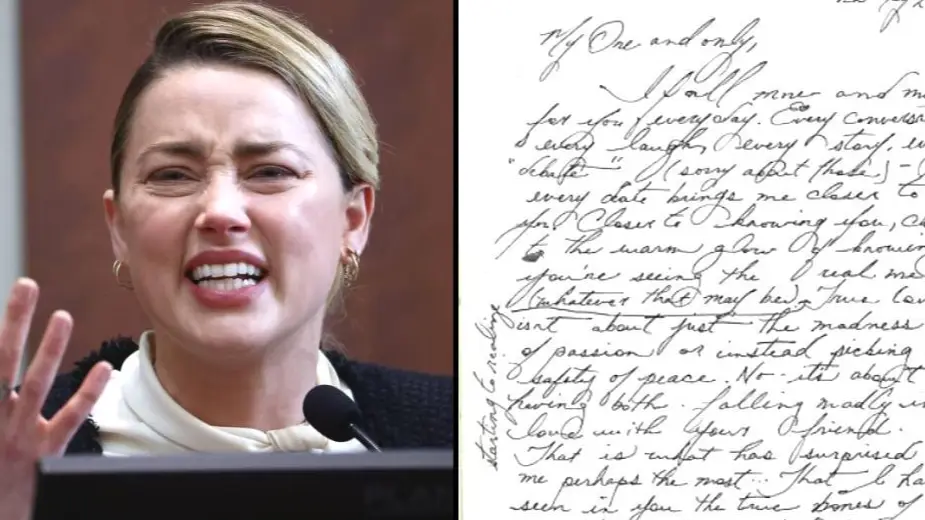 My One and only,
I fall more and m
for you everyday. Every convers
every laugh, every story, ev
"debate" (sorry about those) -
every date brings me closer to
you. Closer to knowing you, c
to the warm glow of knowin
you're seeing the real me
(whatever that may be). True lov
isn't about just the madness
of passion or instead picking
safety of peace. No - it's about
having both. falling madly in
love with your friend.
That is what has surprised
me perhaps the most... That I ha
seen in you the true bones of
starting to realize